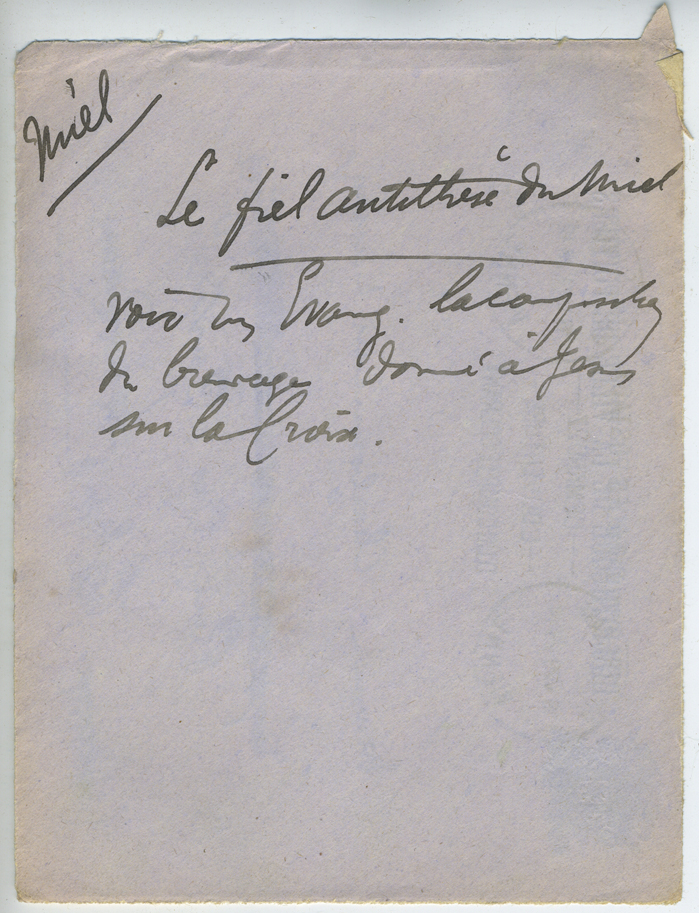 Miel
Le fiel antithèse du Miel
voir les Evang. la composition
du breuvage donné à Jesus
sur la Croix.